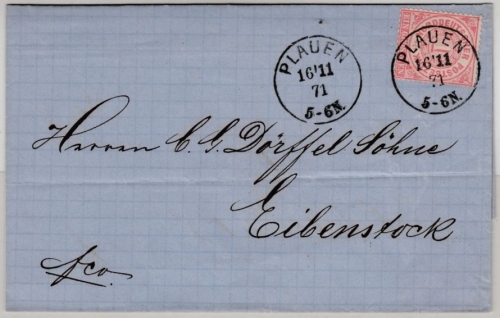 PLAUEN
16 11
71
5-6N.
PLAUEN
16 11
71
5-6N.
Herren C. G. Dörffel Söhne
Eibenstock
fco